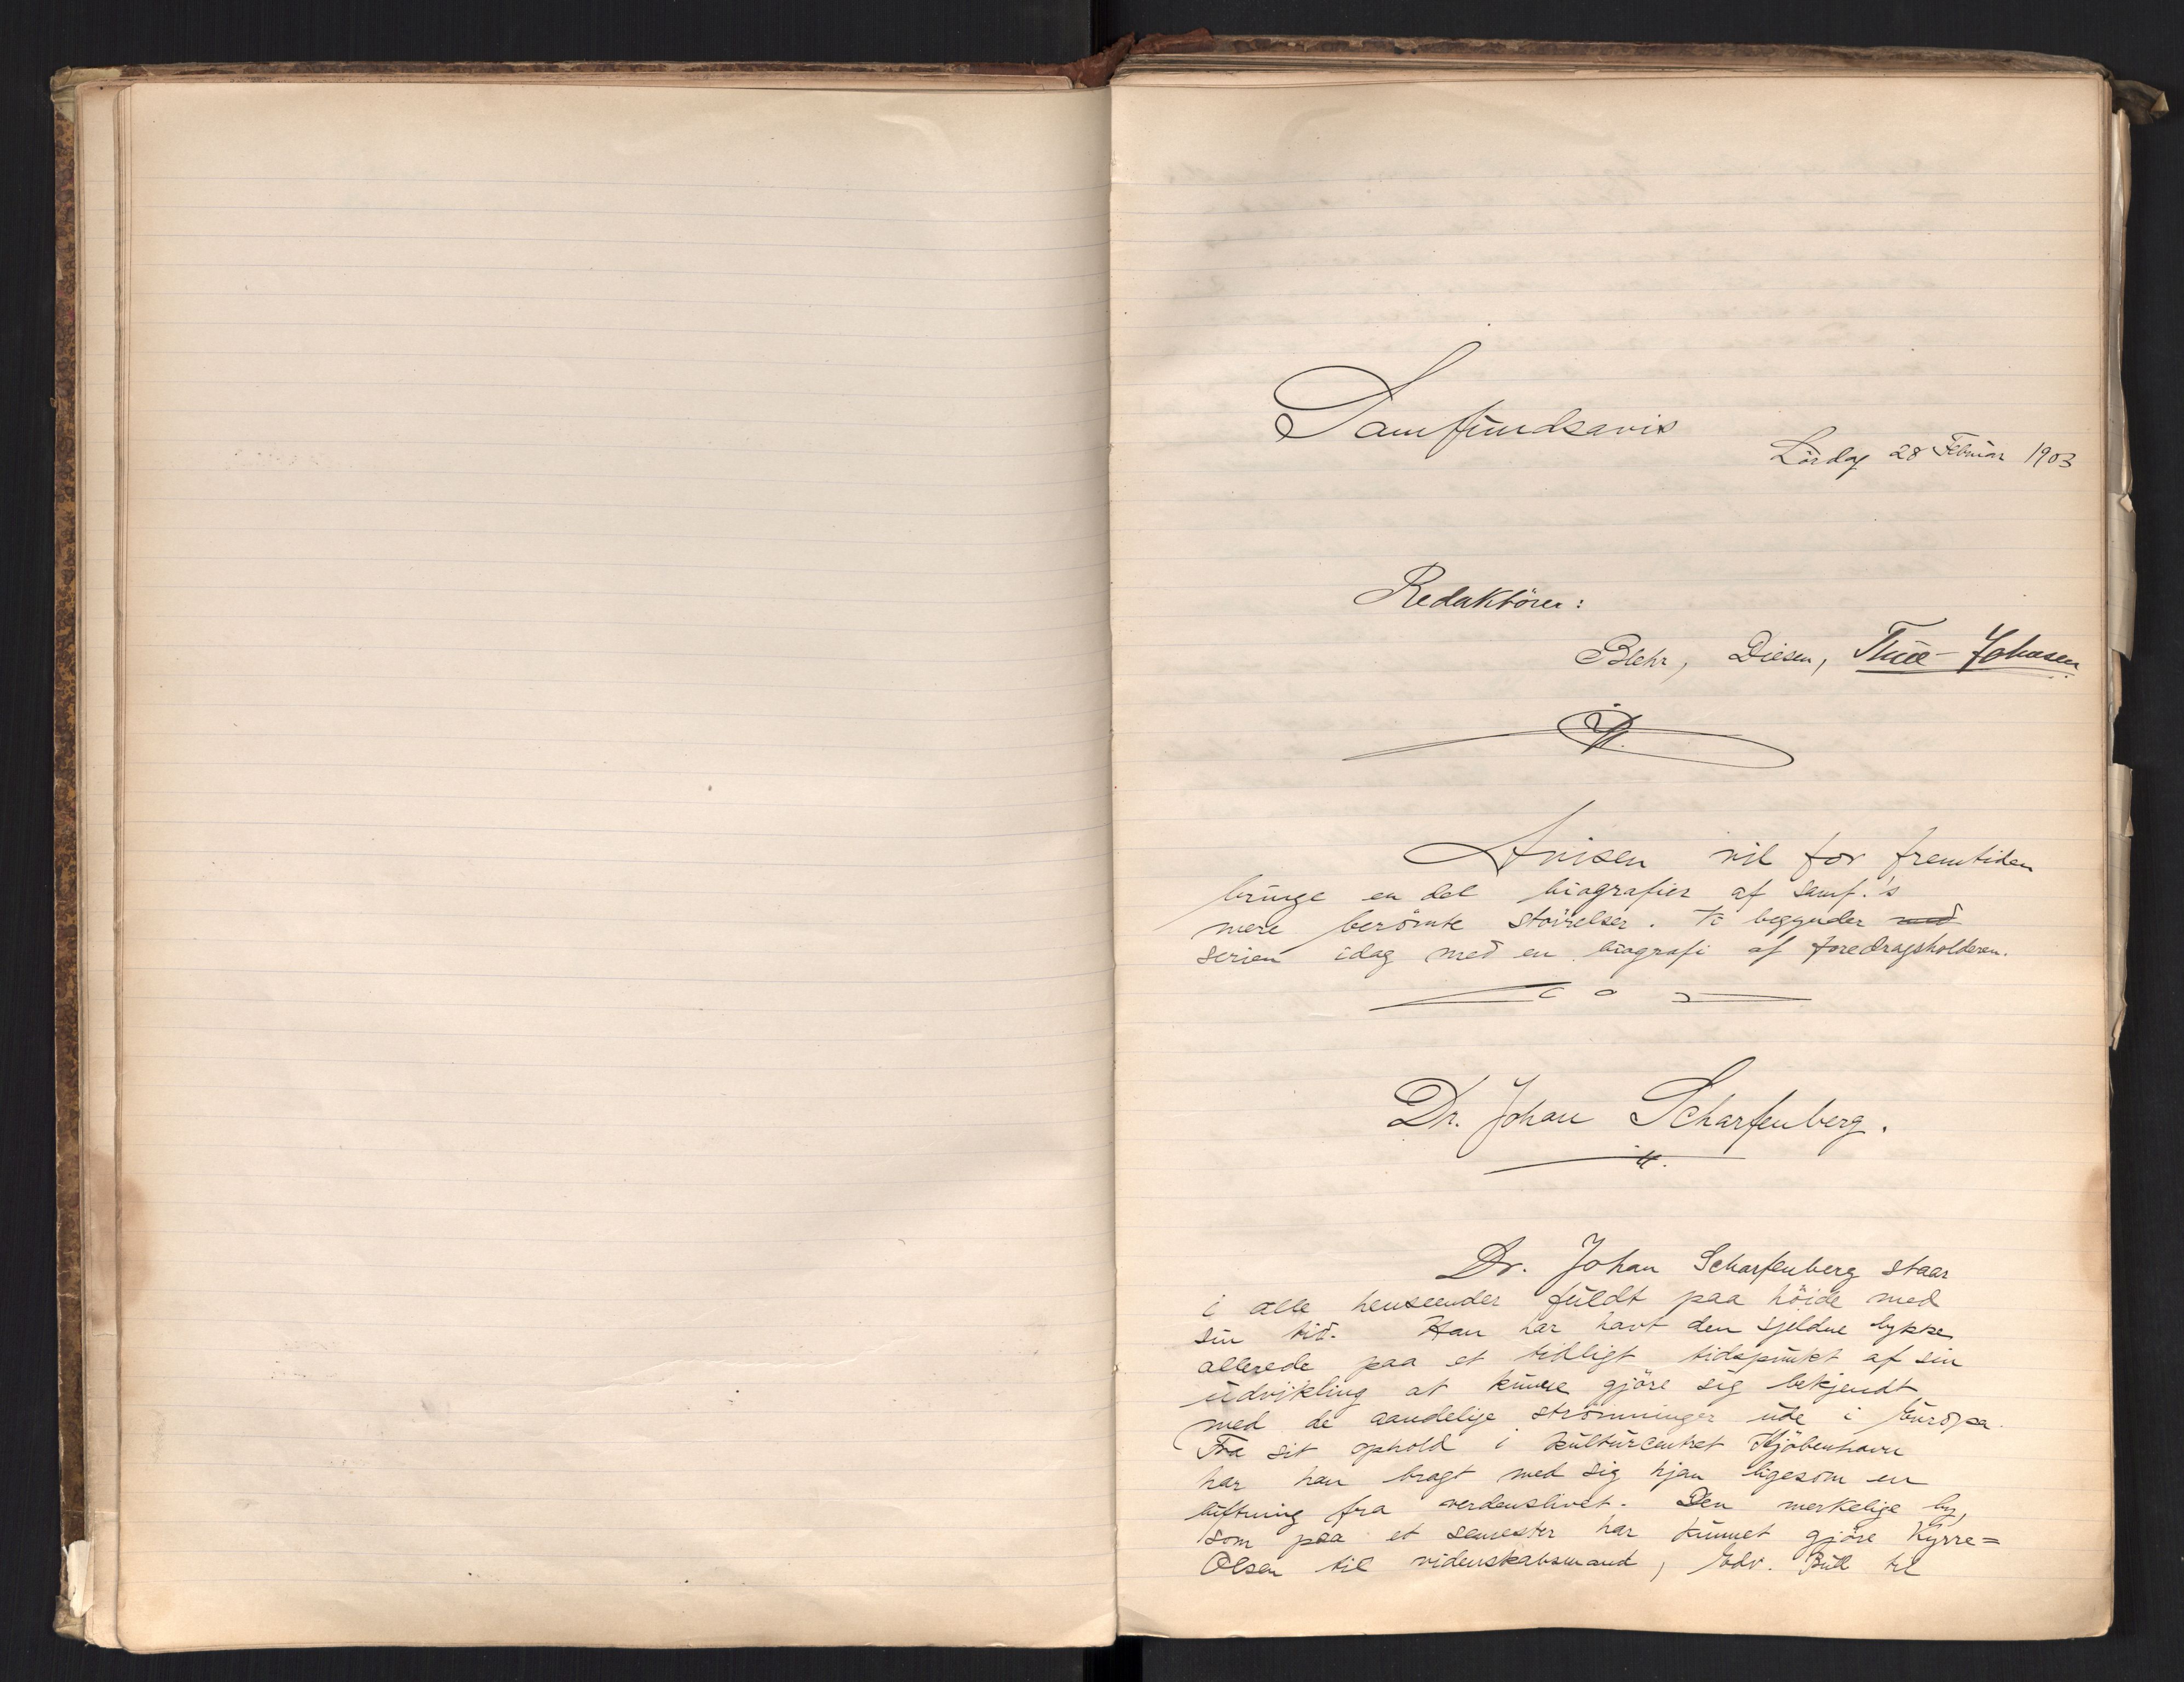 Samfundsavis
Lördag 28 Februar 1903
Redaktörer:
Blehr, Diesen, Thue-Johnsen
Avisen vil for fremtiden
bringe en del biografier af samf.'s
mere berömte störrelser. Vi begynder med
serien idag med en biografi af foredragsholderen.
Dr. Johan Scharfenberg.
Dr. Johan Scharfenberg staar
i alle henseender fuldt paa höide med
sin tid. Han har havt den sjeldne lykke
allerede paa et tidligt tidspunkt af sin
udvikling at kunne gjöre sig bekjendt
med de aandelige strömninger ude i Europa.
Fra sit ophold i kulturcentret Kjöbenhavn
har han bragt med sig hjem ligesom en
luftning fra verdenslivet. Den merkelige by,
som paa et semester har kunnet gjöre Kyrre=
Olsen til videnskabsmand, Edv. Bull til